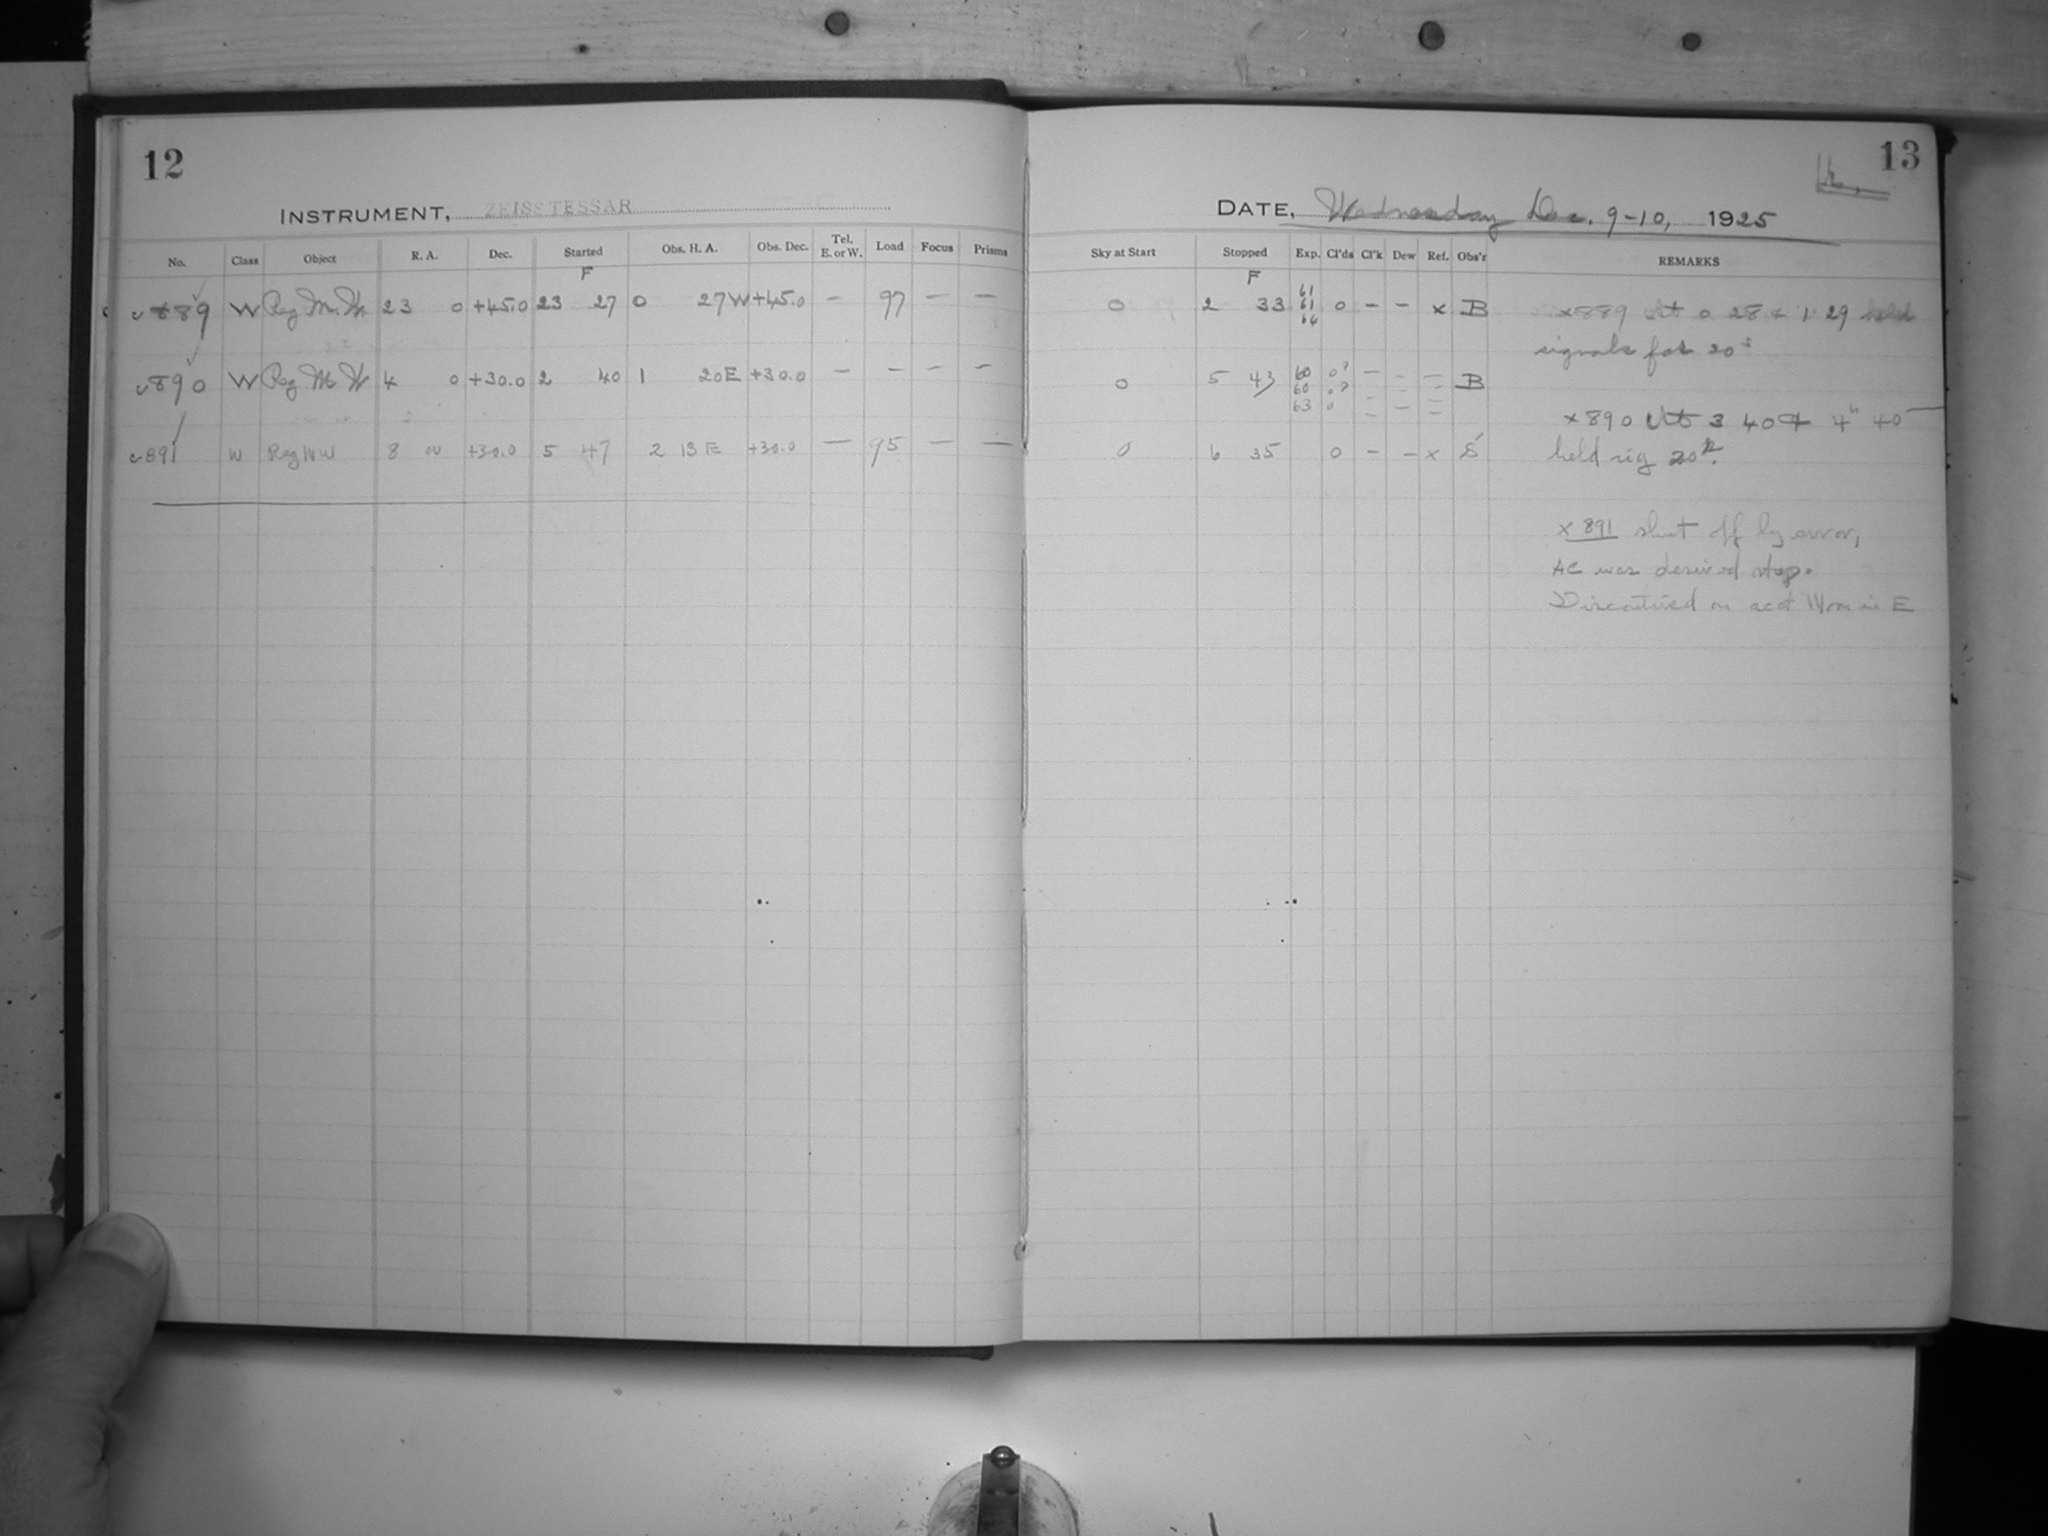 12
INSTRUMENT, ZEISS TESSAR
No. Class Object R. A. Dec. Started Obs. H. A. Obs. Dec. Tel. E. or W. Load Focus Prisms
F
889 W Reg M. W. 23 0 +45.0 23 27 0 27 W +45.0 — 97 — —
890 W Reg M W 4 0 +30.0 2 40 1 20 E +30.0 — — — —
891 W Reg MW 8 00 +30.0 5 47 2 13 E +30.0 — 95 — —
13
DATE, Wednesday Dec. 9-10, 1925
Sky at Start Stopped Exp. Cl'ds Cl'k Dew Ref. Obs'r REMARKS
F
0 2 33 61 61 64 0 — — x B
0 5 43 60 60 63 0? 0? 0 — — — — — — — — — B
0 6 35 0 — — x S
x 889 At 0 28 + 1 29 held
signals for 20s
x 890 At 3 40 + 4h 40
held sig 20s.
x 891 shut off by error,
AC was desired stop.
Discontinued on acct Moon in E